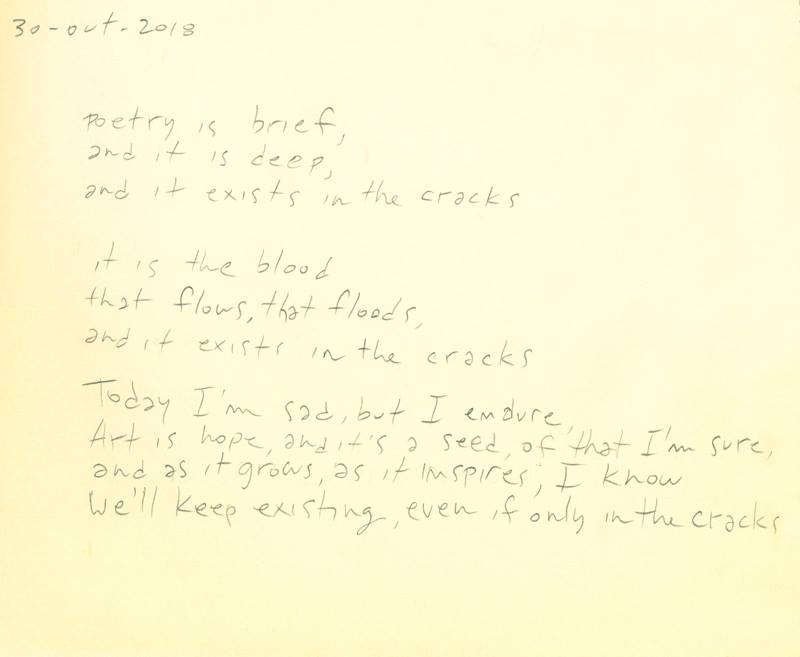 30-out-2018
Poetry is brief,
and it is deep,
and it exists in the cracks
it is the blood
that flows, that floods,
and it exists in the cracks
Today I'm sad, but I endure,
Art is hope, and it's a seed, of that I'm sure,
and as it grows, as it inspires, I know
We'll keep existing, even if only in the cracks